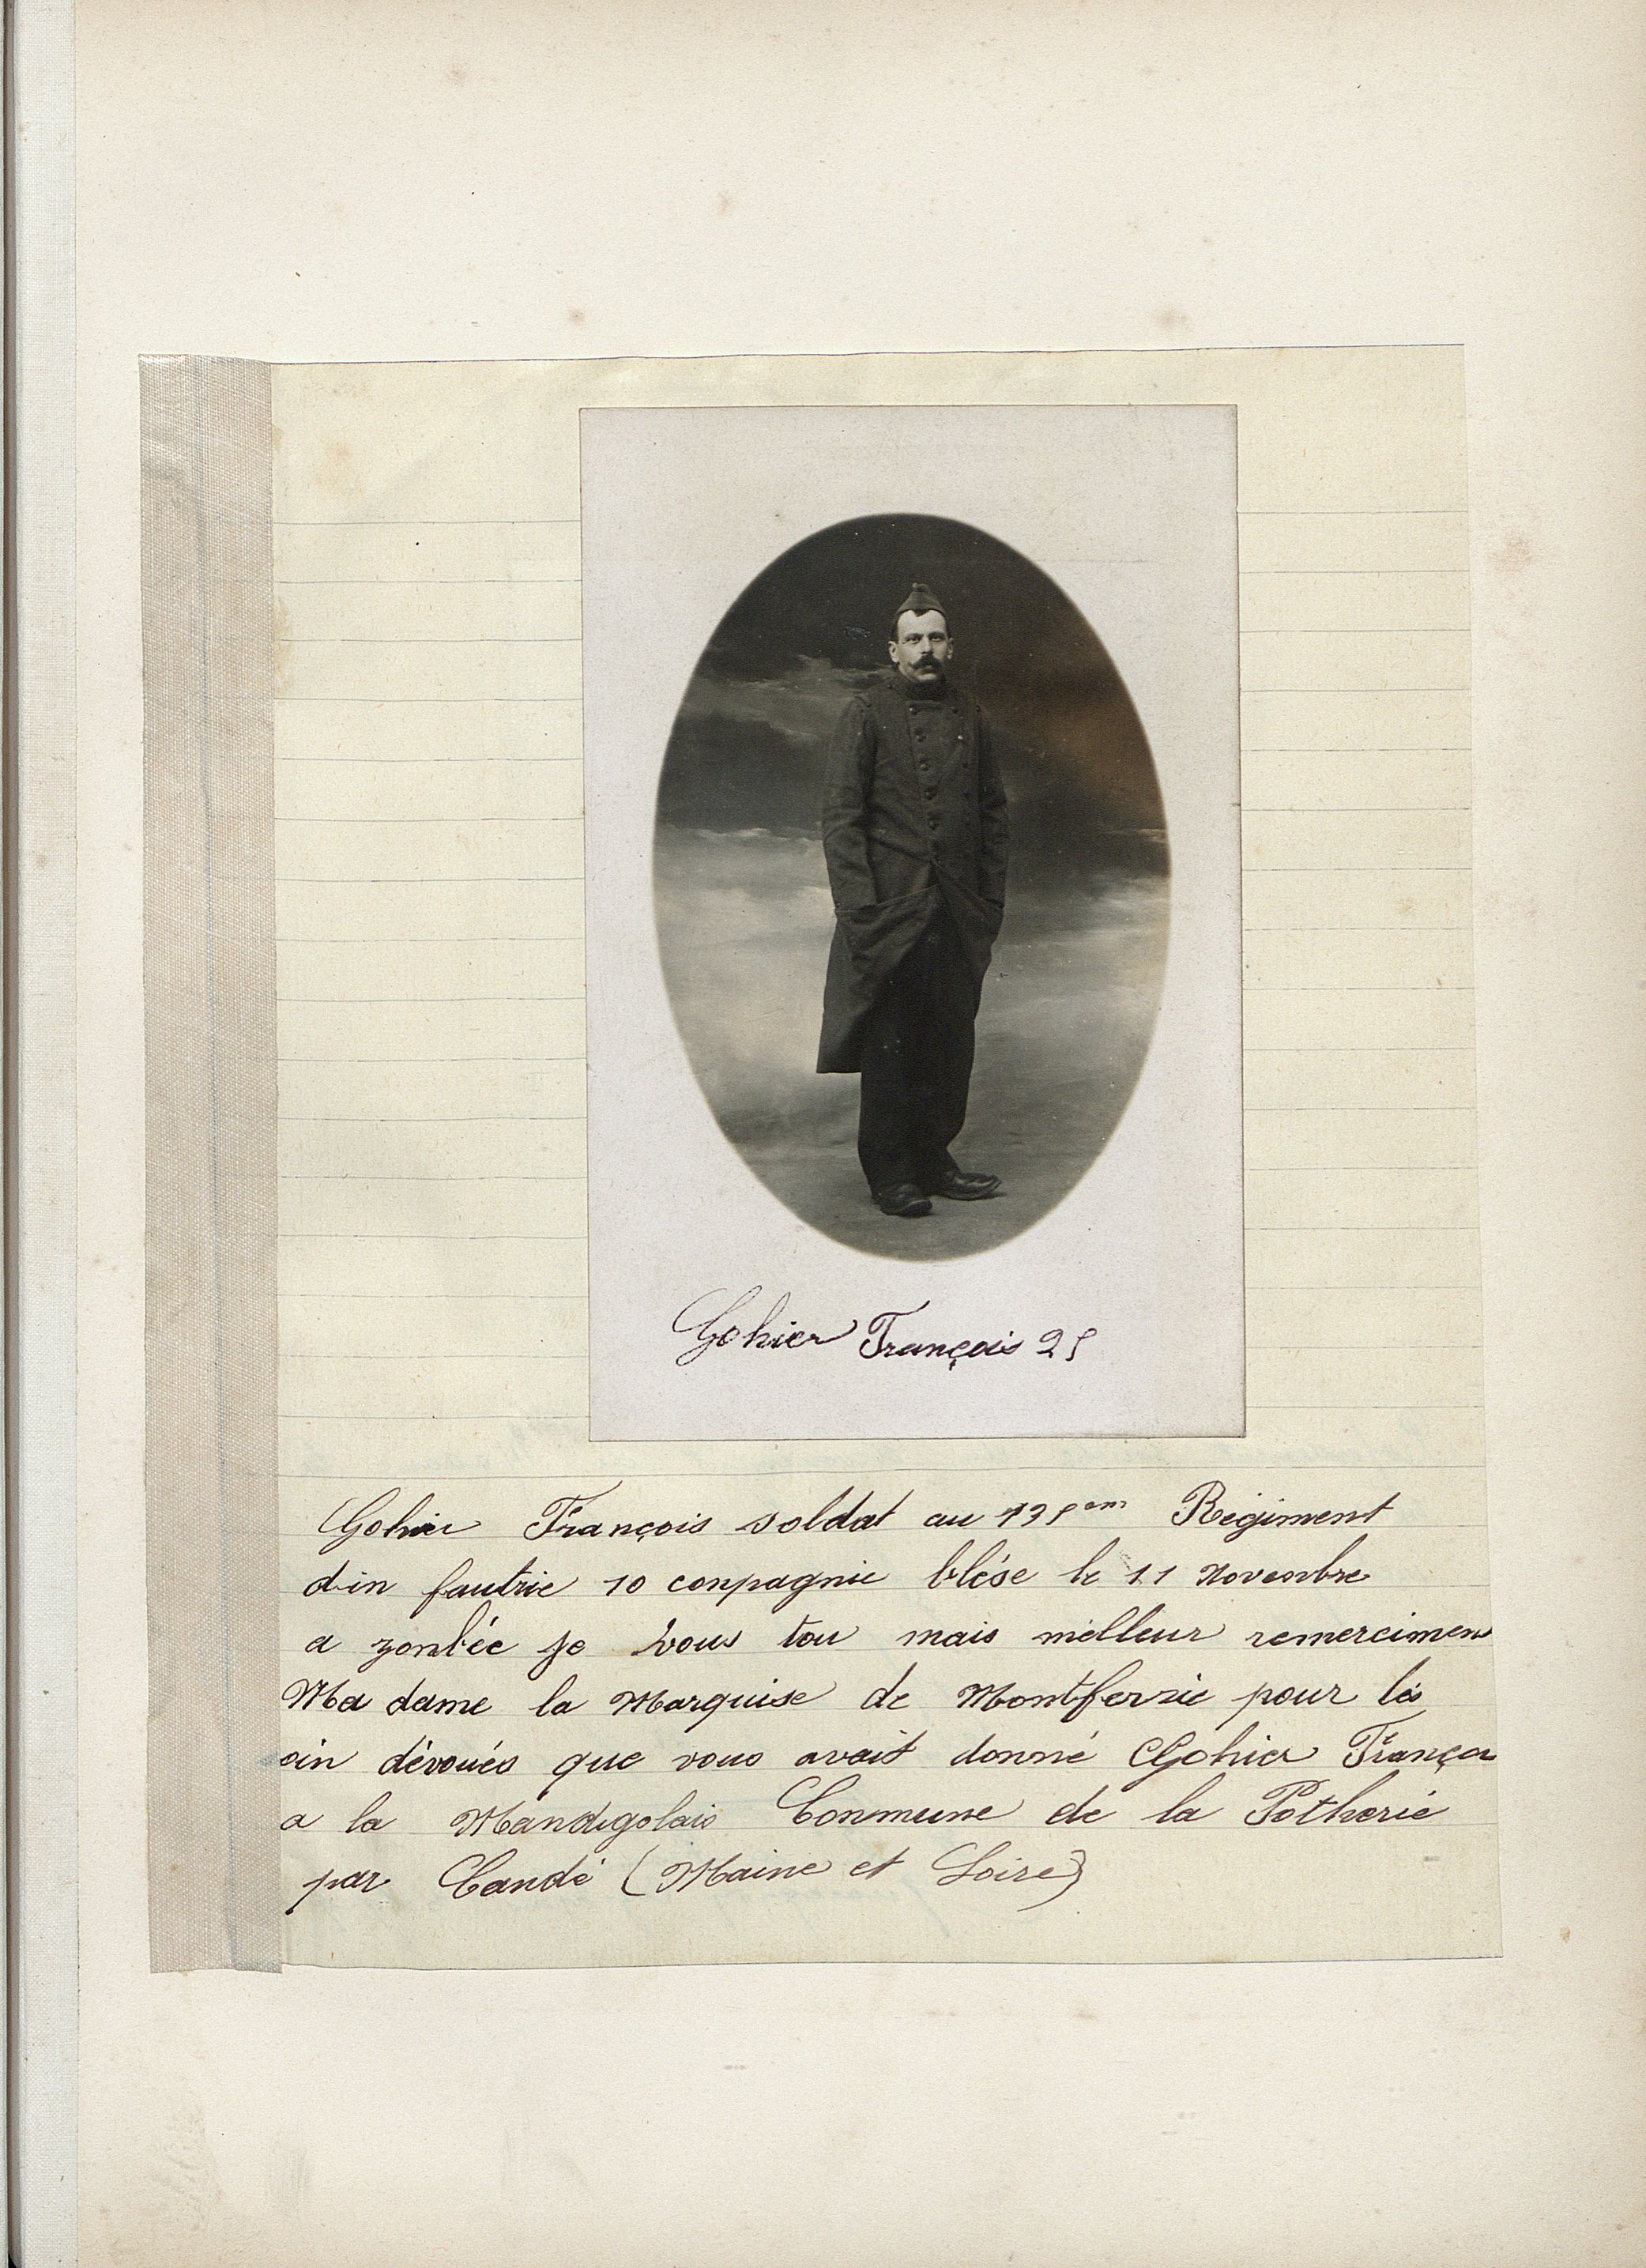 Gohier François 25
Gohier François soldat au 135em Régiment
din fautrie 10 conpagnie blése le 11 Novenbre
a zonbée je vous tou mais mélleur remercimens
Ma dame la Marquise de Montferrié pour lés
oin dévoués que vous avait donné Gohier Françoi
a la Mandigolais Conmune de la Potherie
par Candé (Maine et Loire)